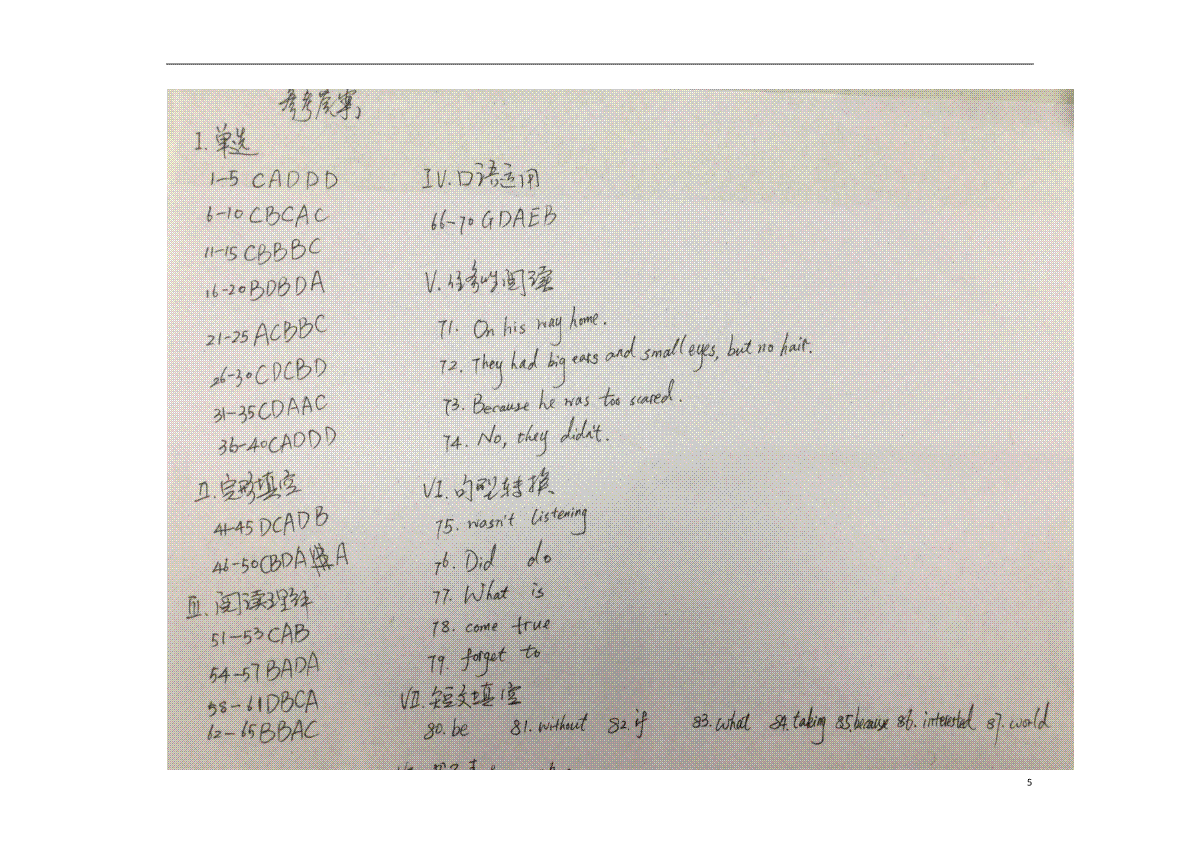 参考答案
I.单选
1-5 CADDD
6-10 CBCAC
11-15 CBBBC
16-20 BDBDA
21-25 ACBBC
26-30 CDCBD
31-35 CDAAC
36-40 CADDD
II.完形填空
41-45 DCADB
46-50 CBDA A
III.阅读理解
51-53 CAB
54-57 BADA
58-61 DBCA
62-65 BBAC
IV.口语运用
66-70 GDAEB
V.任务性阅读
71. On his way home.
72. They had big ears and small eyes, but no hair.
73. Because he was too scared.
74. No, they didn't.
VI.句型转换
75. wasn't listening
76. Did do
77. What is
78. come true
79. forget to
VII.短文填空
80. be 81. without 82. if 83. what 84. taking 85. because 86. interested 87. world
5